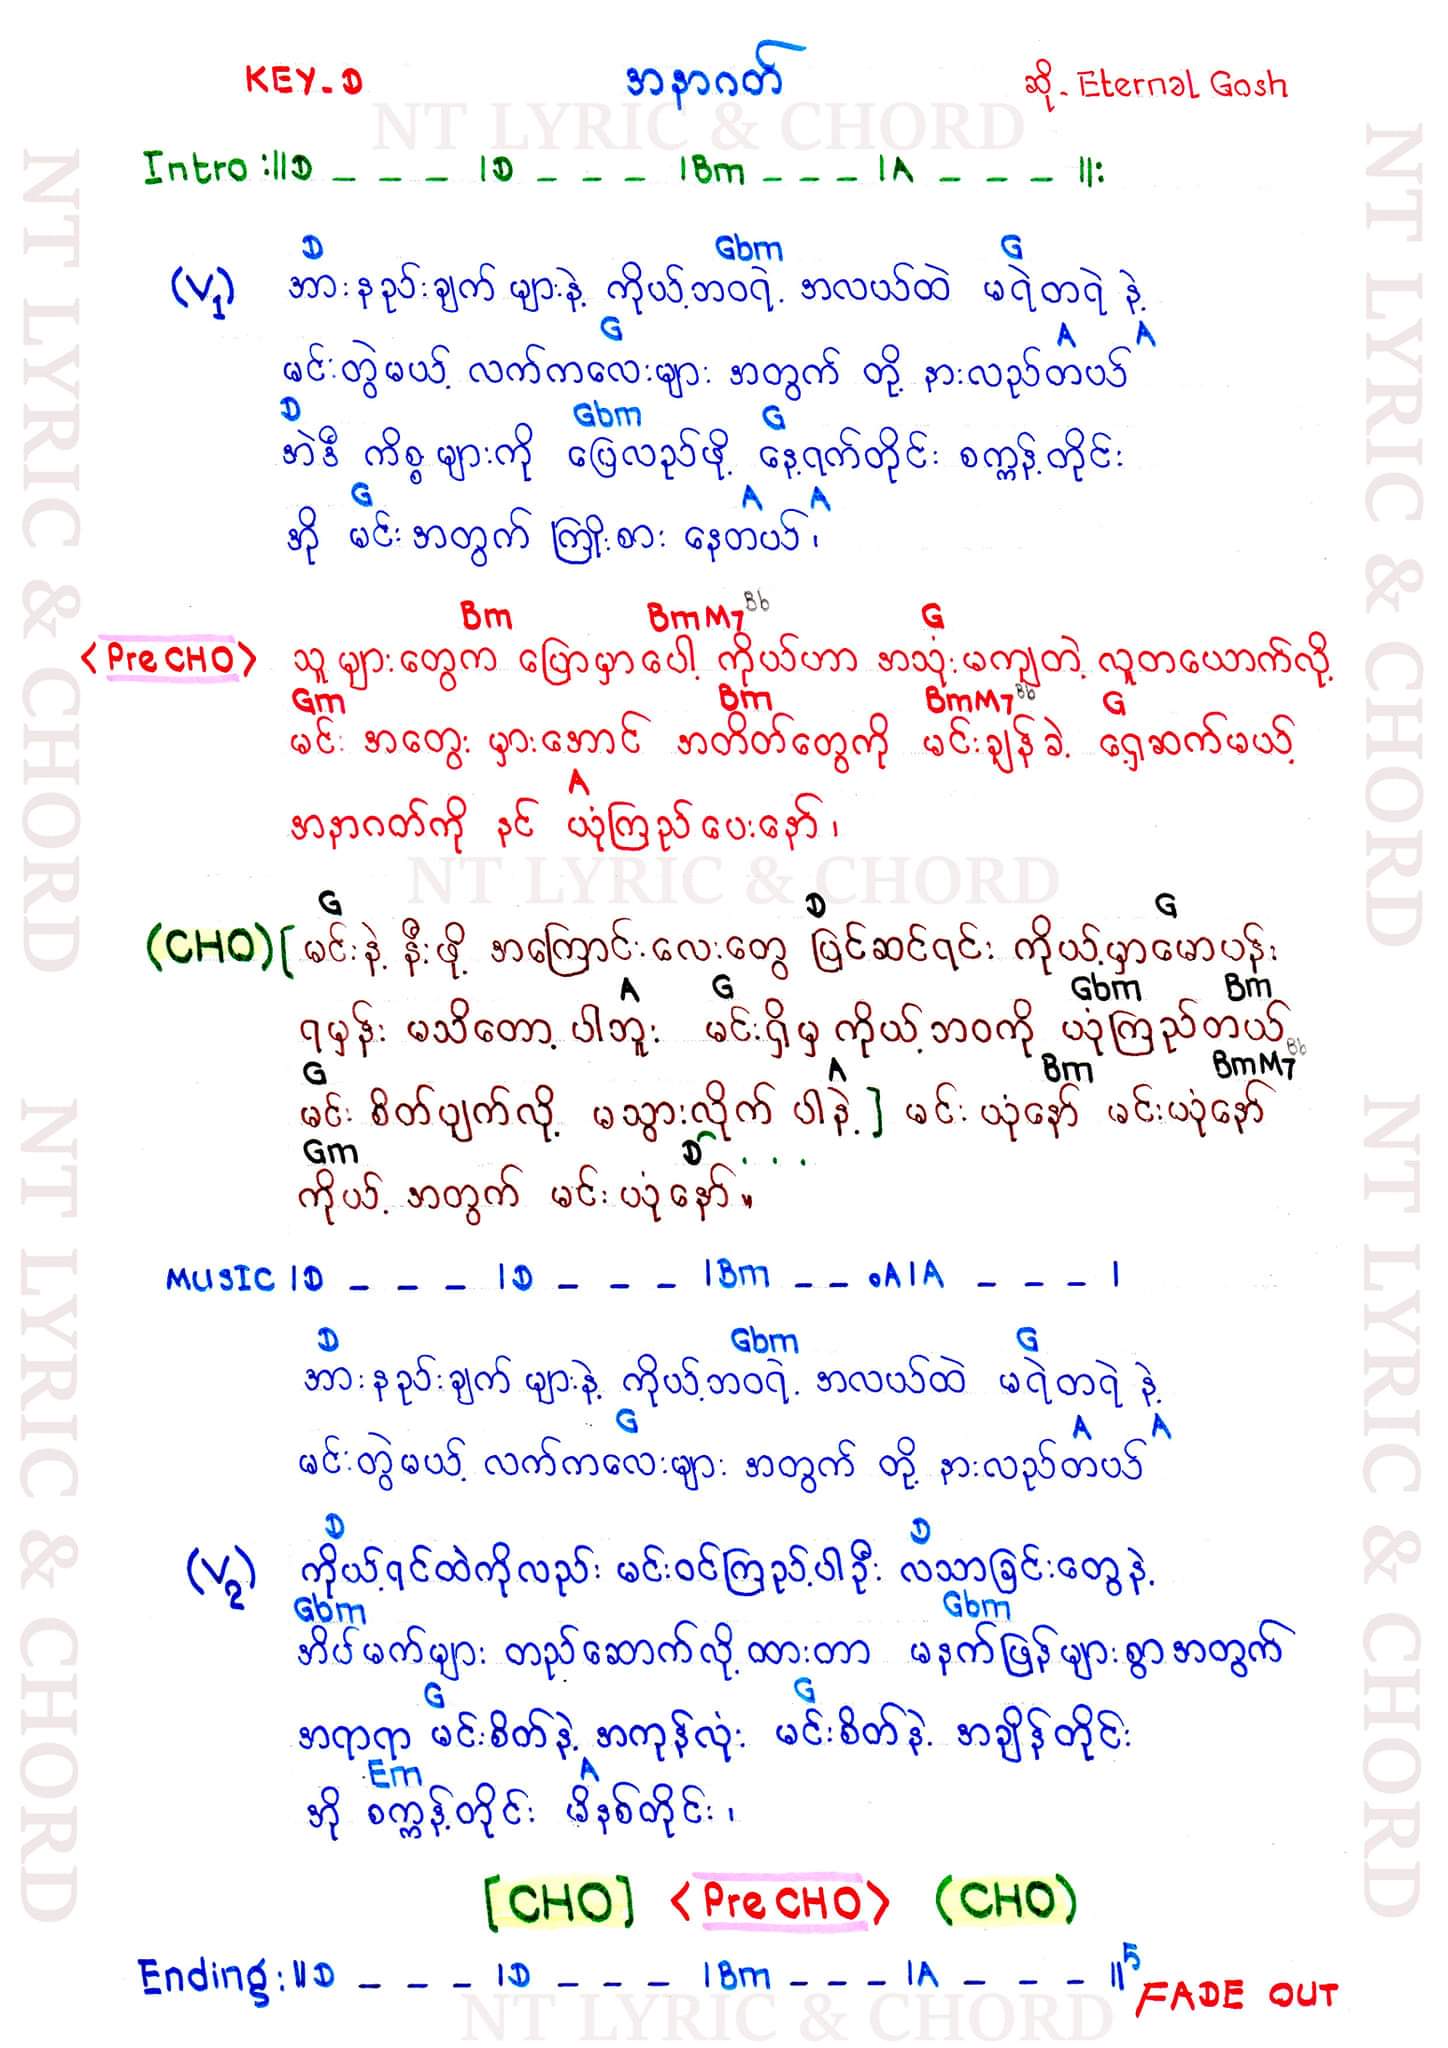 KEY-D အနာဂတ် ဆို- Eternal Gosh
NT LYRIC & CHORD
Intro :||D _ _ _ |D _ _ _ |Bm _ _ _ |A _ _ _ ||:
D Gbm G
(V1) အားနည်းချက် များနဲ့ ကိုယ့်ဘဝရဲ့ အလယ်ထဲ မရဲတရဲ နဲ့
G A A
မင်းတွဲမယ့် လက်ကလေးများ အတွက် တို့ နားလည်တယ်
D Gbm G
အဲဒီ ကိစ္စများကို ပြေလည်ဖို့ နေ့ရက်တိုင်း စက္ကန့်တိုင်း
G A A
အို မင်းအတွက် ကြိုးစား နေတယ်၊
Bm BmM7 Bb G
<Pre CHO> သူများတွေက ပြောမှာပေါ့ ကိုယ်ဟာ အသုံးမကျတဲ့ လူတယောက်လို့
Gm Bm BmM7 Bb G
မင်း အတွေး မှားအောင် အတိတ်တွေကို မင်းချန်ခဲ့ ရှေ့ဆက်မယ့်
A
အနာဂတ်ကို နင် ယုံကြည်ပေးနော်၊
NT LYRIC & CHORD
G D G
(CHO) [ မင်းနဲ့ နီးဖို့ အကြောင်းလေးတွေ ပြင်ဆင်ရင်း ကိုယ့်မှာမောပန်း
A G Gbm Bm
ရမှန်း မသိတော့ ပါဘူး မင်းရှိမှ ကိုယ့်ဘဝကို ယုံကြည်တယ်
G A Bm BmM7 Bb
မင်း စိတ်ပျက်လို့ မသွားလိုက် ပါနဲ့ ] မင်း ယုံနော် မင်းယုံနော်
Gm D . . .
ကိုယ့် အတွက် မင်းယုံနော်။
MUSIC |D _ _ _ |D _ _ _ |Bm _ _ .A|A _ _ _ |
D Gbm G
အားနည်းချက် များနဲ့ ကိုယ့်ဘဝရဲ့ အလယ်ထဲ မရဲတရဲ နဲ့
G A A
မင်းတွဲမယ့် လက်ကလေးများ အတွက် တို့ နားလည်တယ်
D D
(V2) ကိုယ့်ရင်ထဲကိုလည်း မင်းဝင်ကြည့်ပါဦး လိသာခြင်းတွေနဲ့
Gbm Gbm
အိပ်မက်များ တည်ဆောက်လို့ထားတာ မနက်ဖြန်များစွာအတွက်
G G
အရာရာ မင်းစိတ်နဲ့ အကုန်လုံး မင်းစိတ်နဲ့ အချိန်တိုင်း
Em A
အို စက္ကန့်တိုင်း မိနစ်တိုင်း၊
[CHO] <Pre CHO> (CHO)
Ending:||D _ _ _ |D _ _ _ |Bm _ _ _ |A _ _ _ ||5 FADE OUT
NT LYRIC & CHORD
NT LYRIC & CHORD
NT LYRIC & CHORD
NT LYRIC & CHORD
NT LYRIC & CHORD